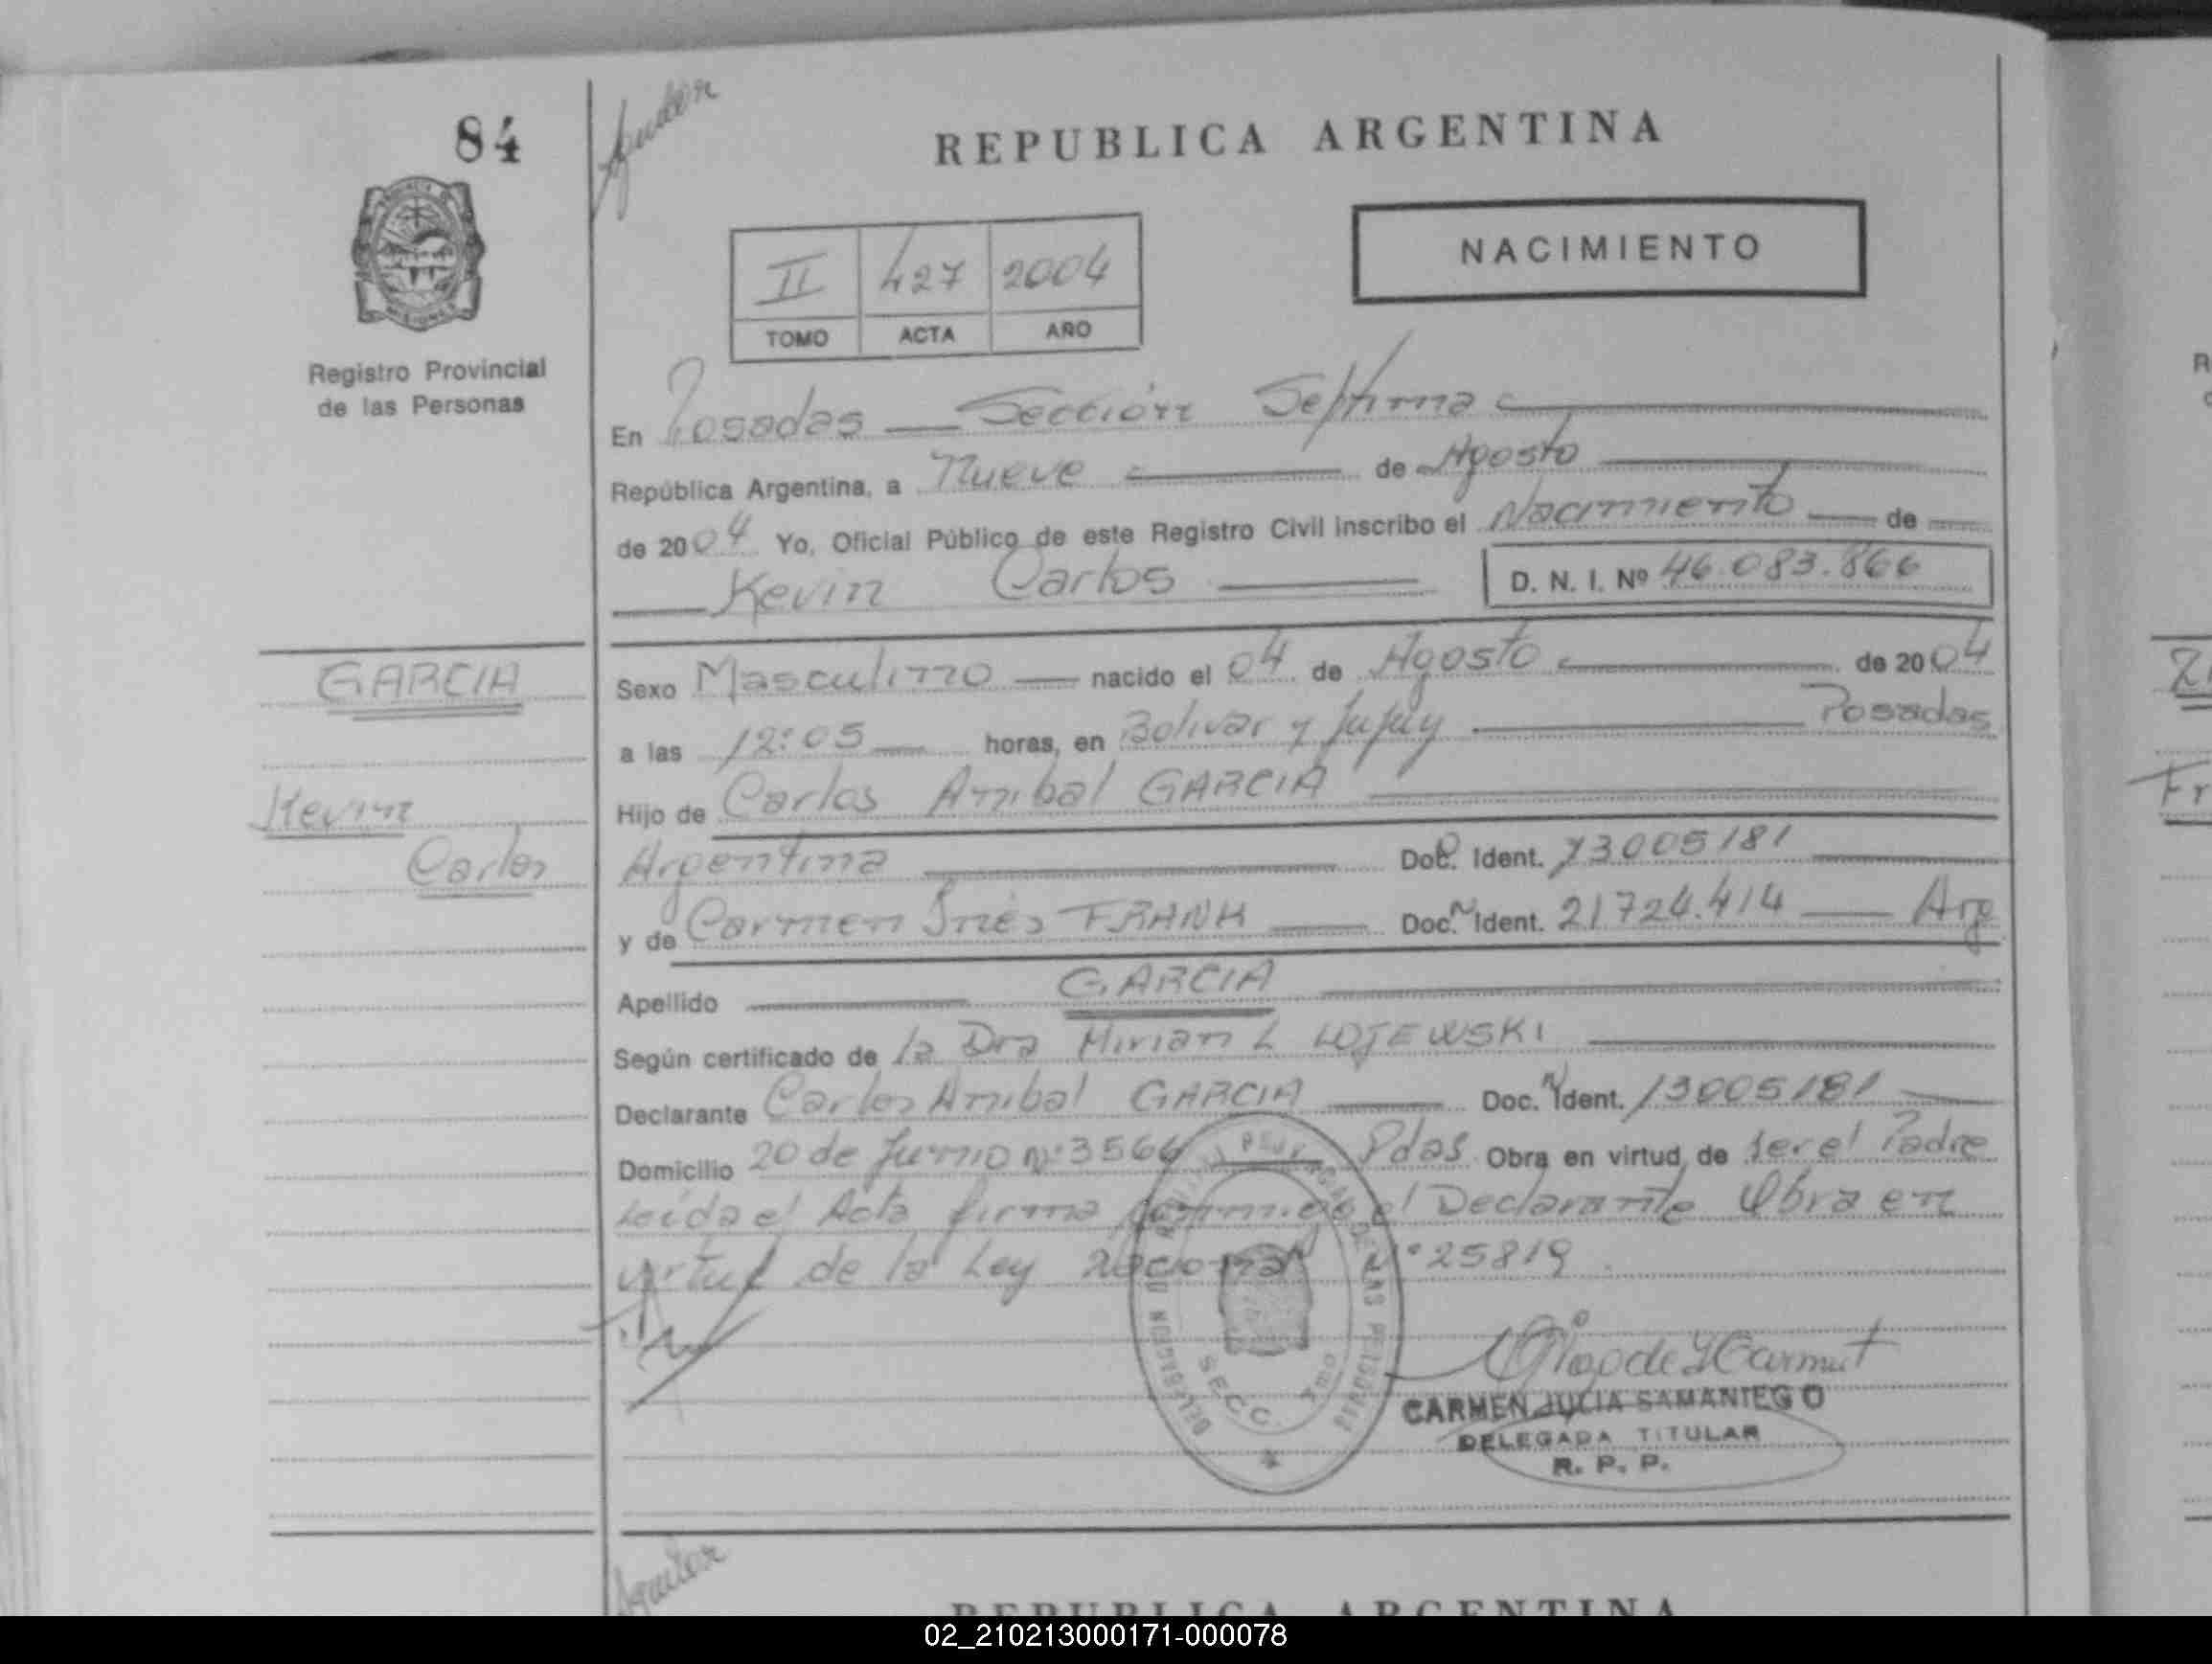 84
REPUBLICA ARGENTINA
NACIMIENTO
II 427 2004
TOMO ACTA AÑO
MISIONES
Registro Provincial
de las Personas
En Posadas — Sección Septima
República Argentina, a Nueve — de Agosto
de 2004 Yo, Oficial Público de este Registro Civil inscribo el Nacimiento — de
Kevin Carlos —
D. N. I. Nº 46.083.866
GARCIA
Kevin
Carlos
Sexo Masculino — nacido el 04 de Agosto — de 2004
a las 12:05 — horas, en Bolivar y Jujuy — Posadas
Hijo de Carlos Anibal GARCIA
Argentina — Doc. Ident. 13005181
y de Carmen Inés FRANK — Doc. Ident. 21724.414 — Arg
Apellido — GARCIA
Según certificado de la Dra Mirian L LOJEWSKI
Declarante Carlos Anibal GARCIA — Doc. Ident. 13005181
Domicilio 20 de Junio Nº 3566 — Pdas Obra en virtud de ser el Padre
Leida el Acta firma conmigo el Declarante Obra en
virtud de la Ley Nacional Nº 25819
SECC. 7ma
CARMEN JULIA SAMANIEGO
DELEGADA TITULAR
R. P. P.
REPUBLICA ARGENTINA
02_210213000171-000078